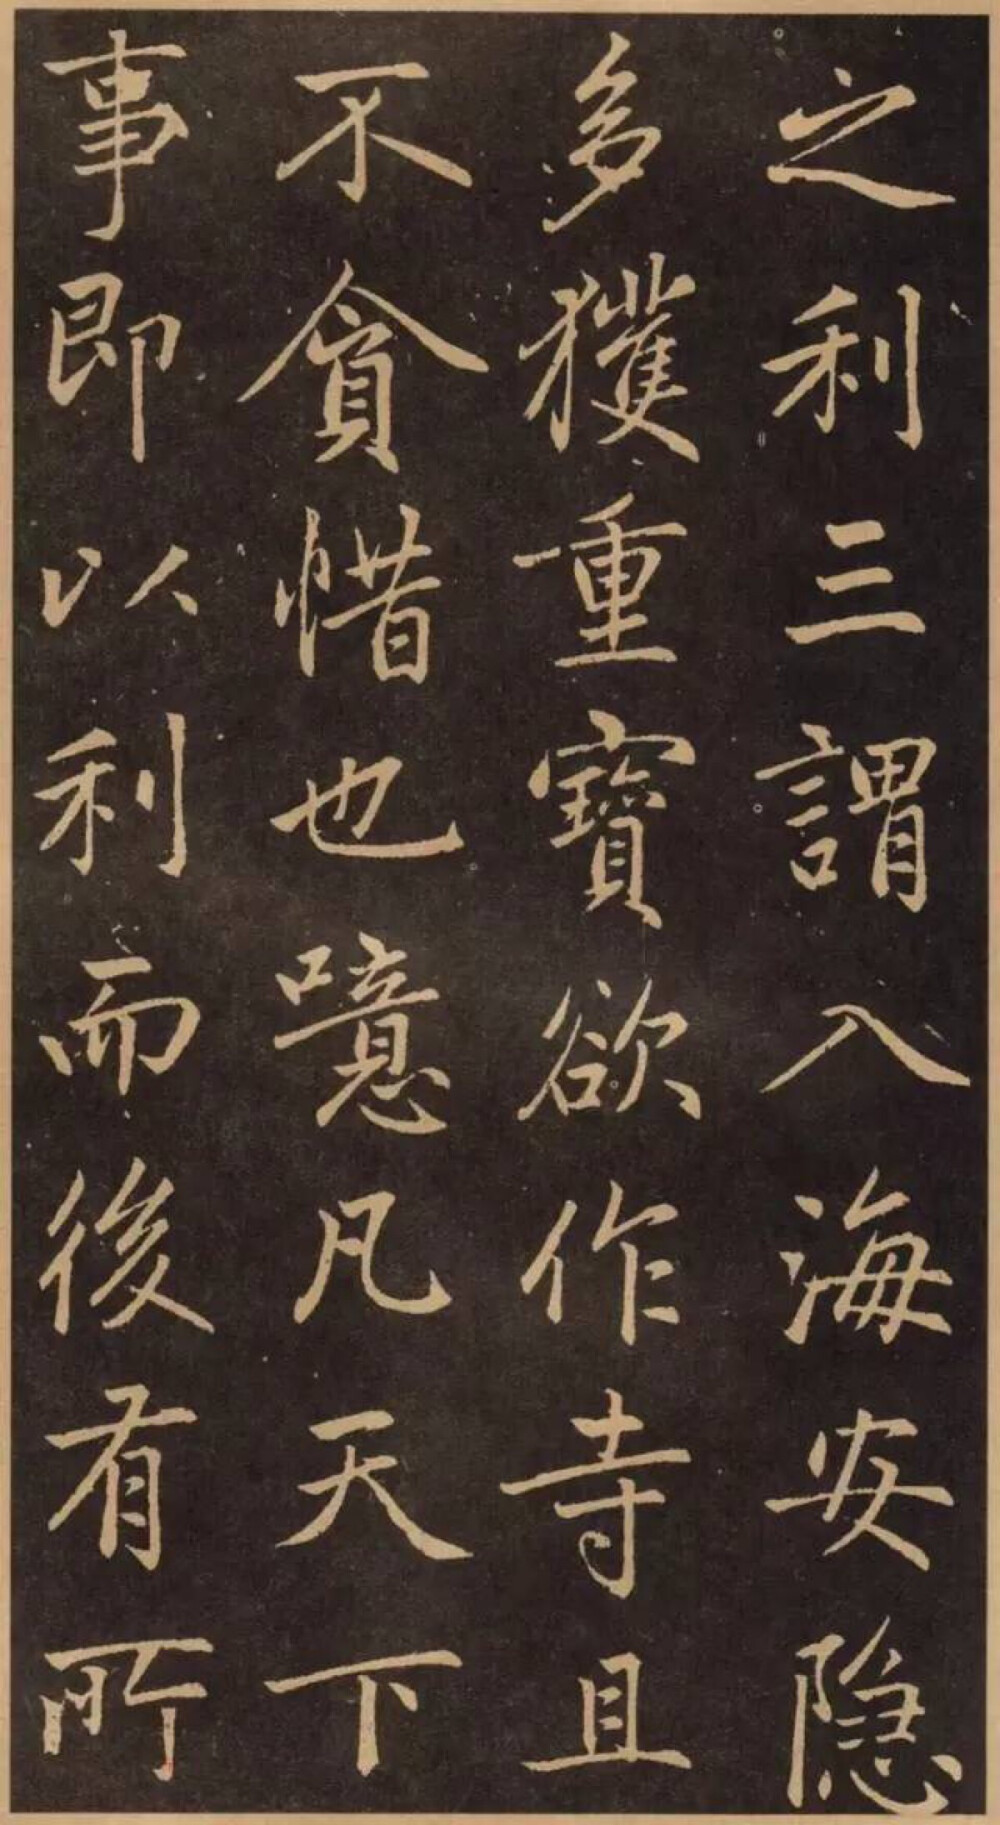 之利三謂入海安隐
多獲重寶欲作寺且
不貪惜也噫凡天下
事即以利而後有所